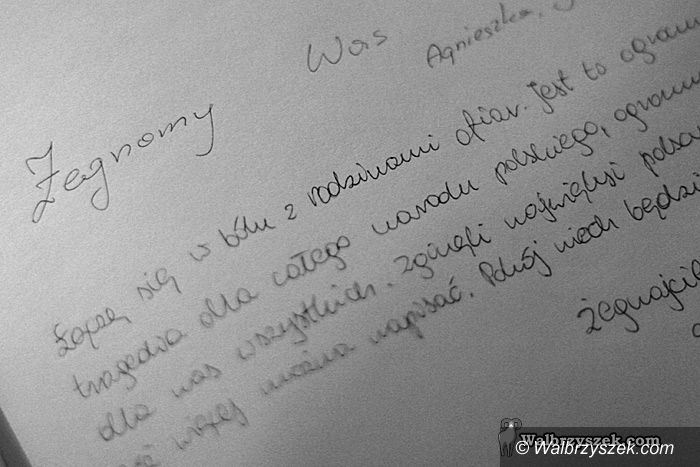 Żegnamy Was Agnieszka,
Łączę się w bólu z rodzinami ofiar. Jest to ogrom
tragedia dla całego narodu polskiego, ogrom
dla nas wszystkich. Zginęli najwięksi polsc
więcej można napisać. Pokój niech będzi
Żegnajcie
Walbrzyszek.com
© Walbrzyszek.com